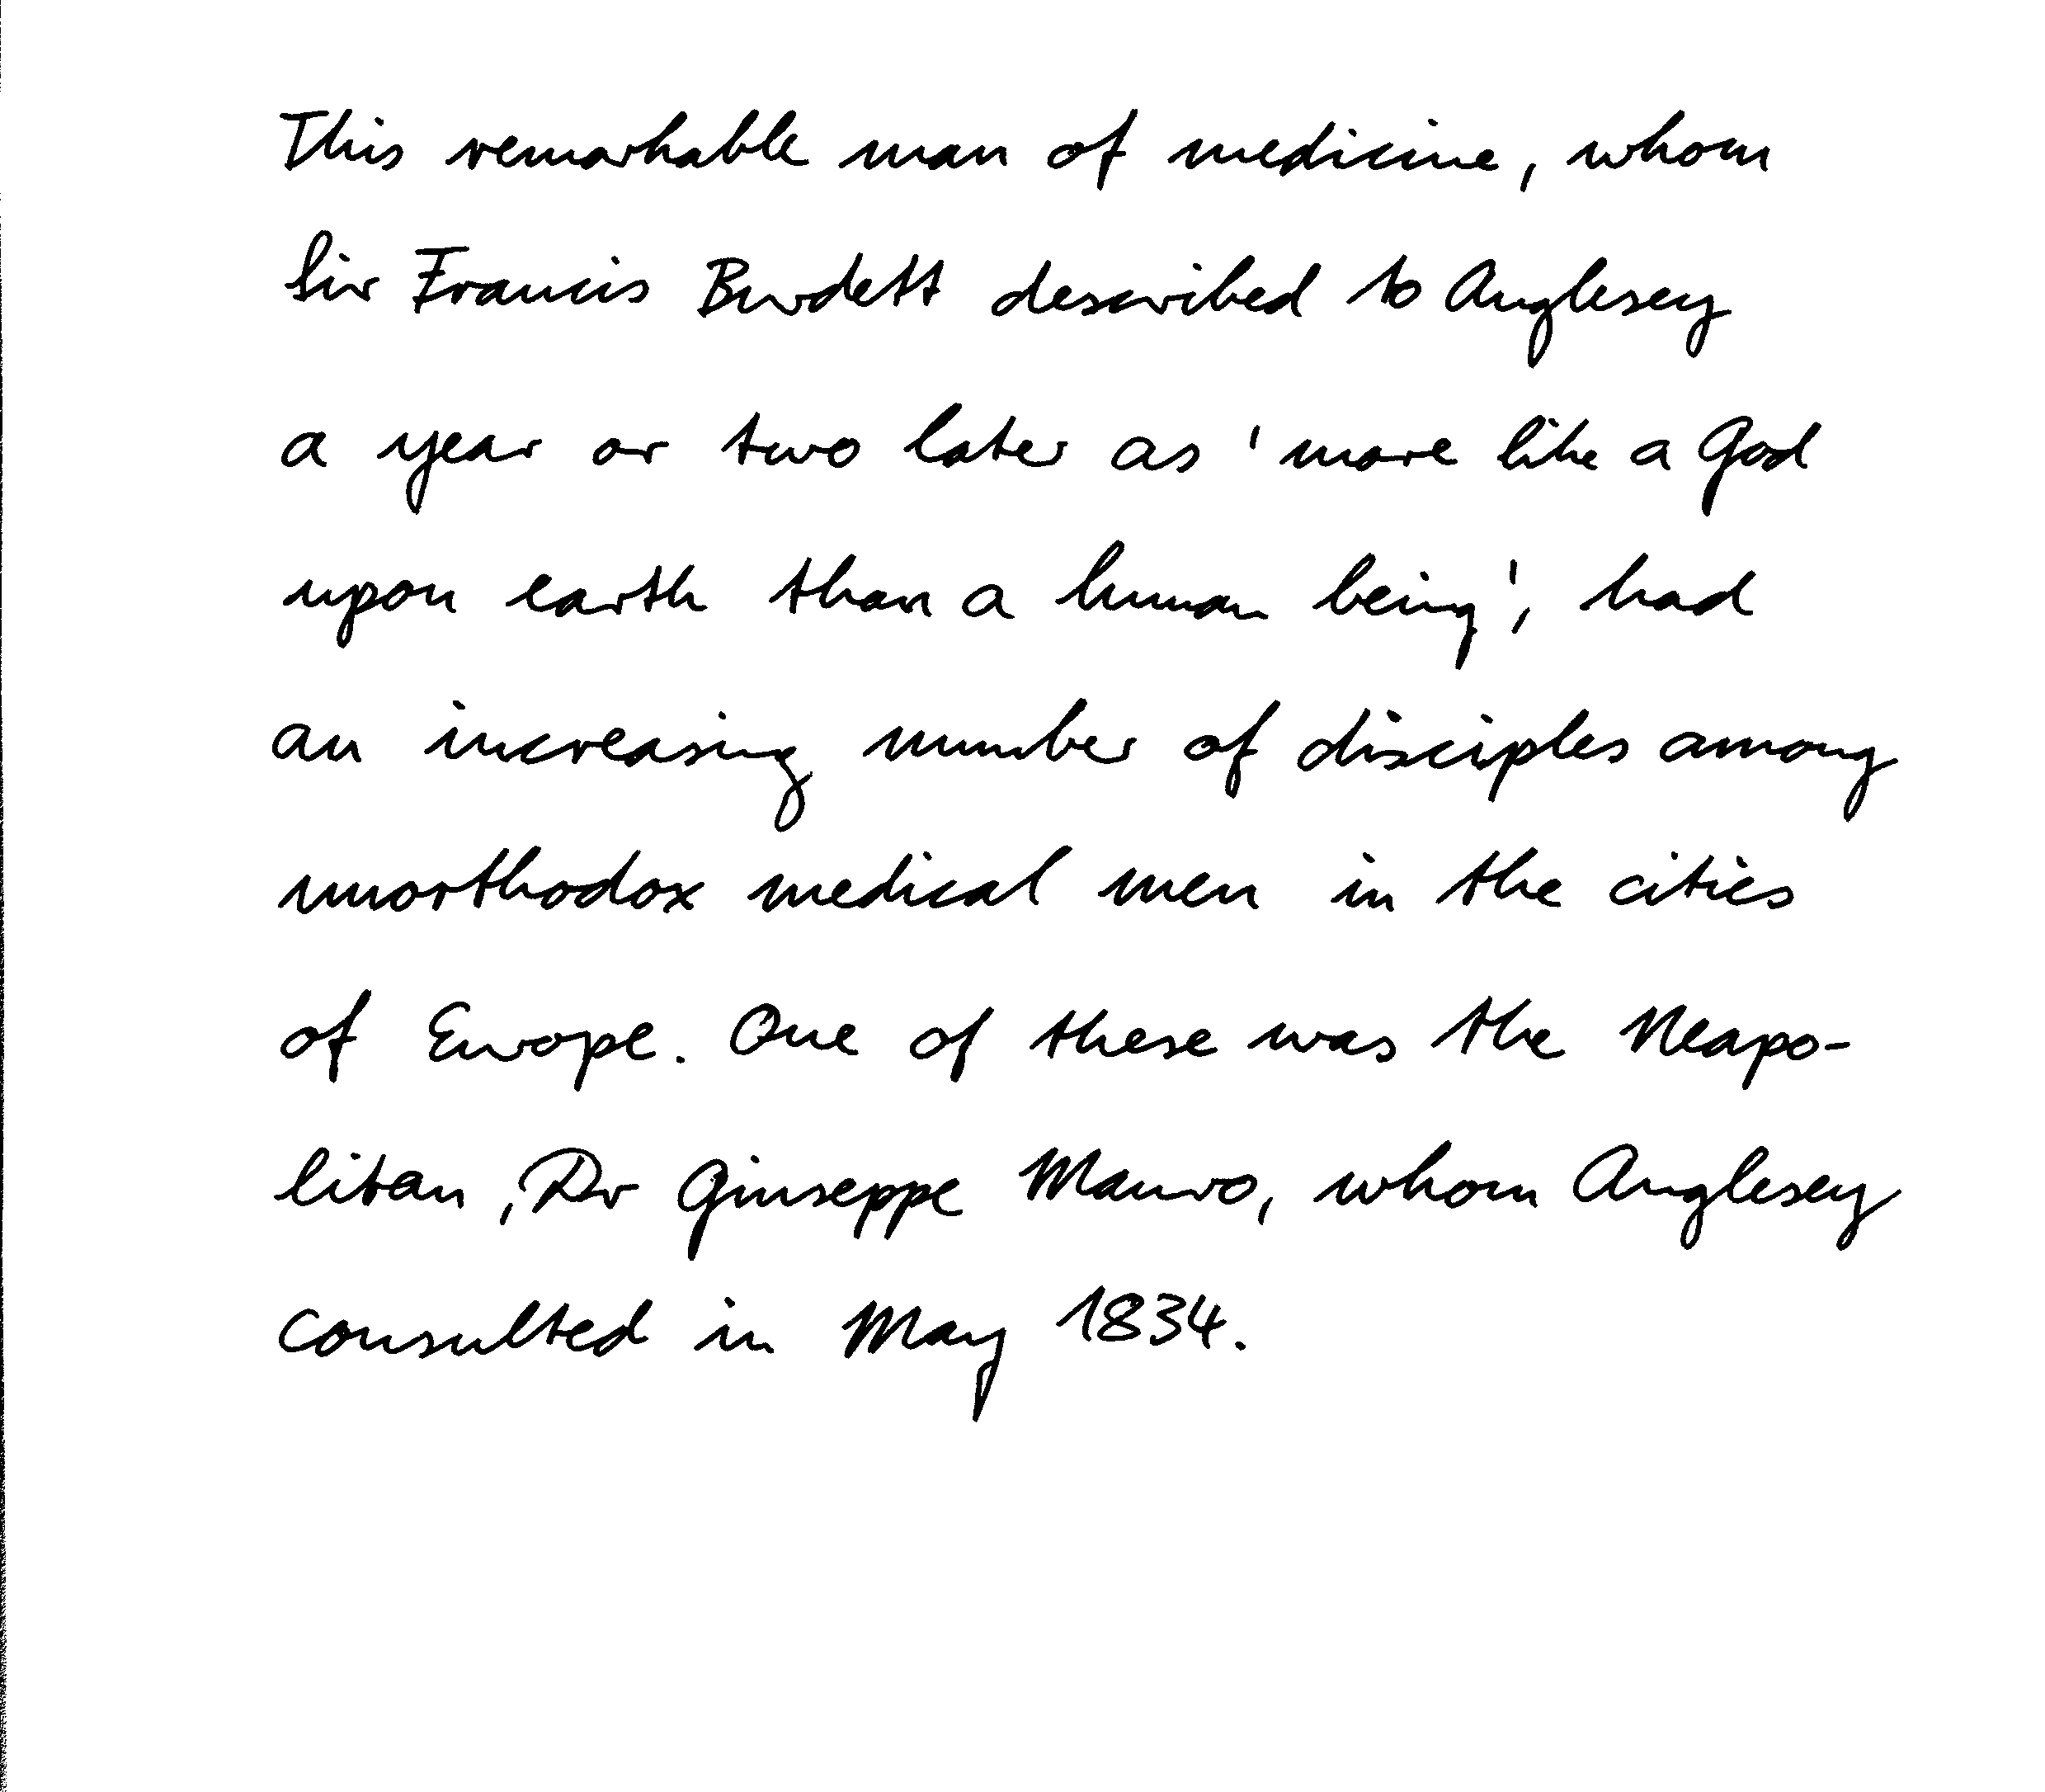 This remarkable man of medicine, whom
Sir Francis Burdett described to Anglesey
a year or two later as 'more like a God
upon earth than a human being', had
an increasing number of disciples among
unorthodox medical men in the cities
of Europe. One of these was the Neapo-
litan, Dr Giuseppe Mauro, whom Anglesey
consulted in May 1834.